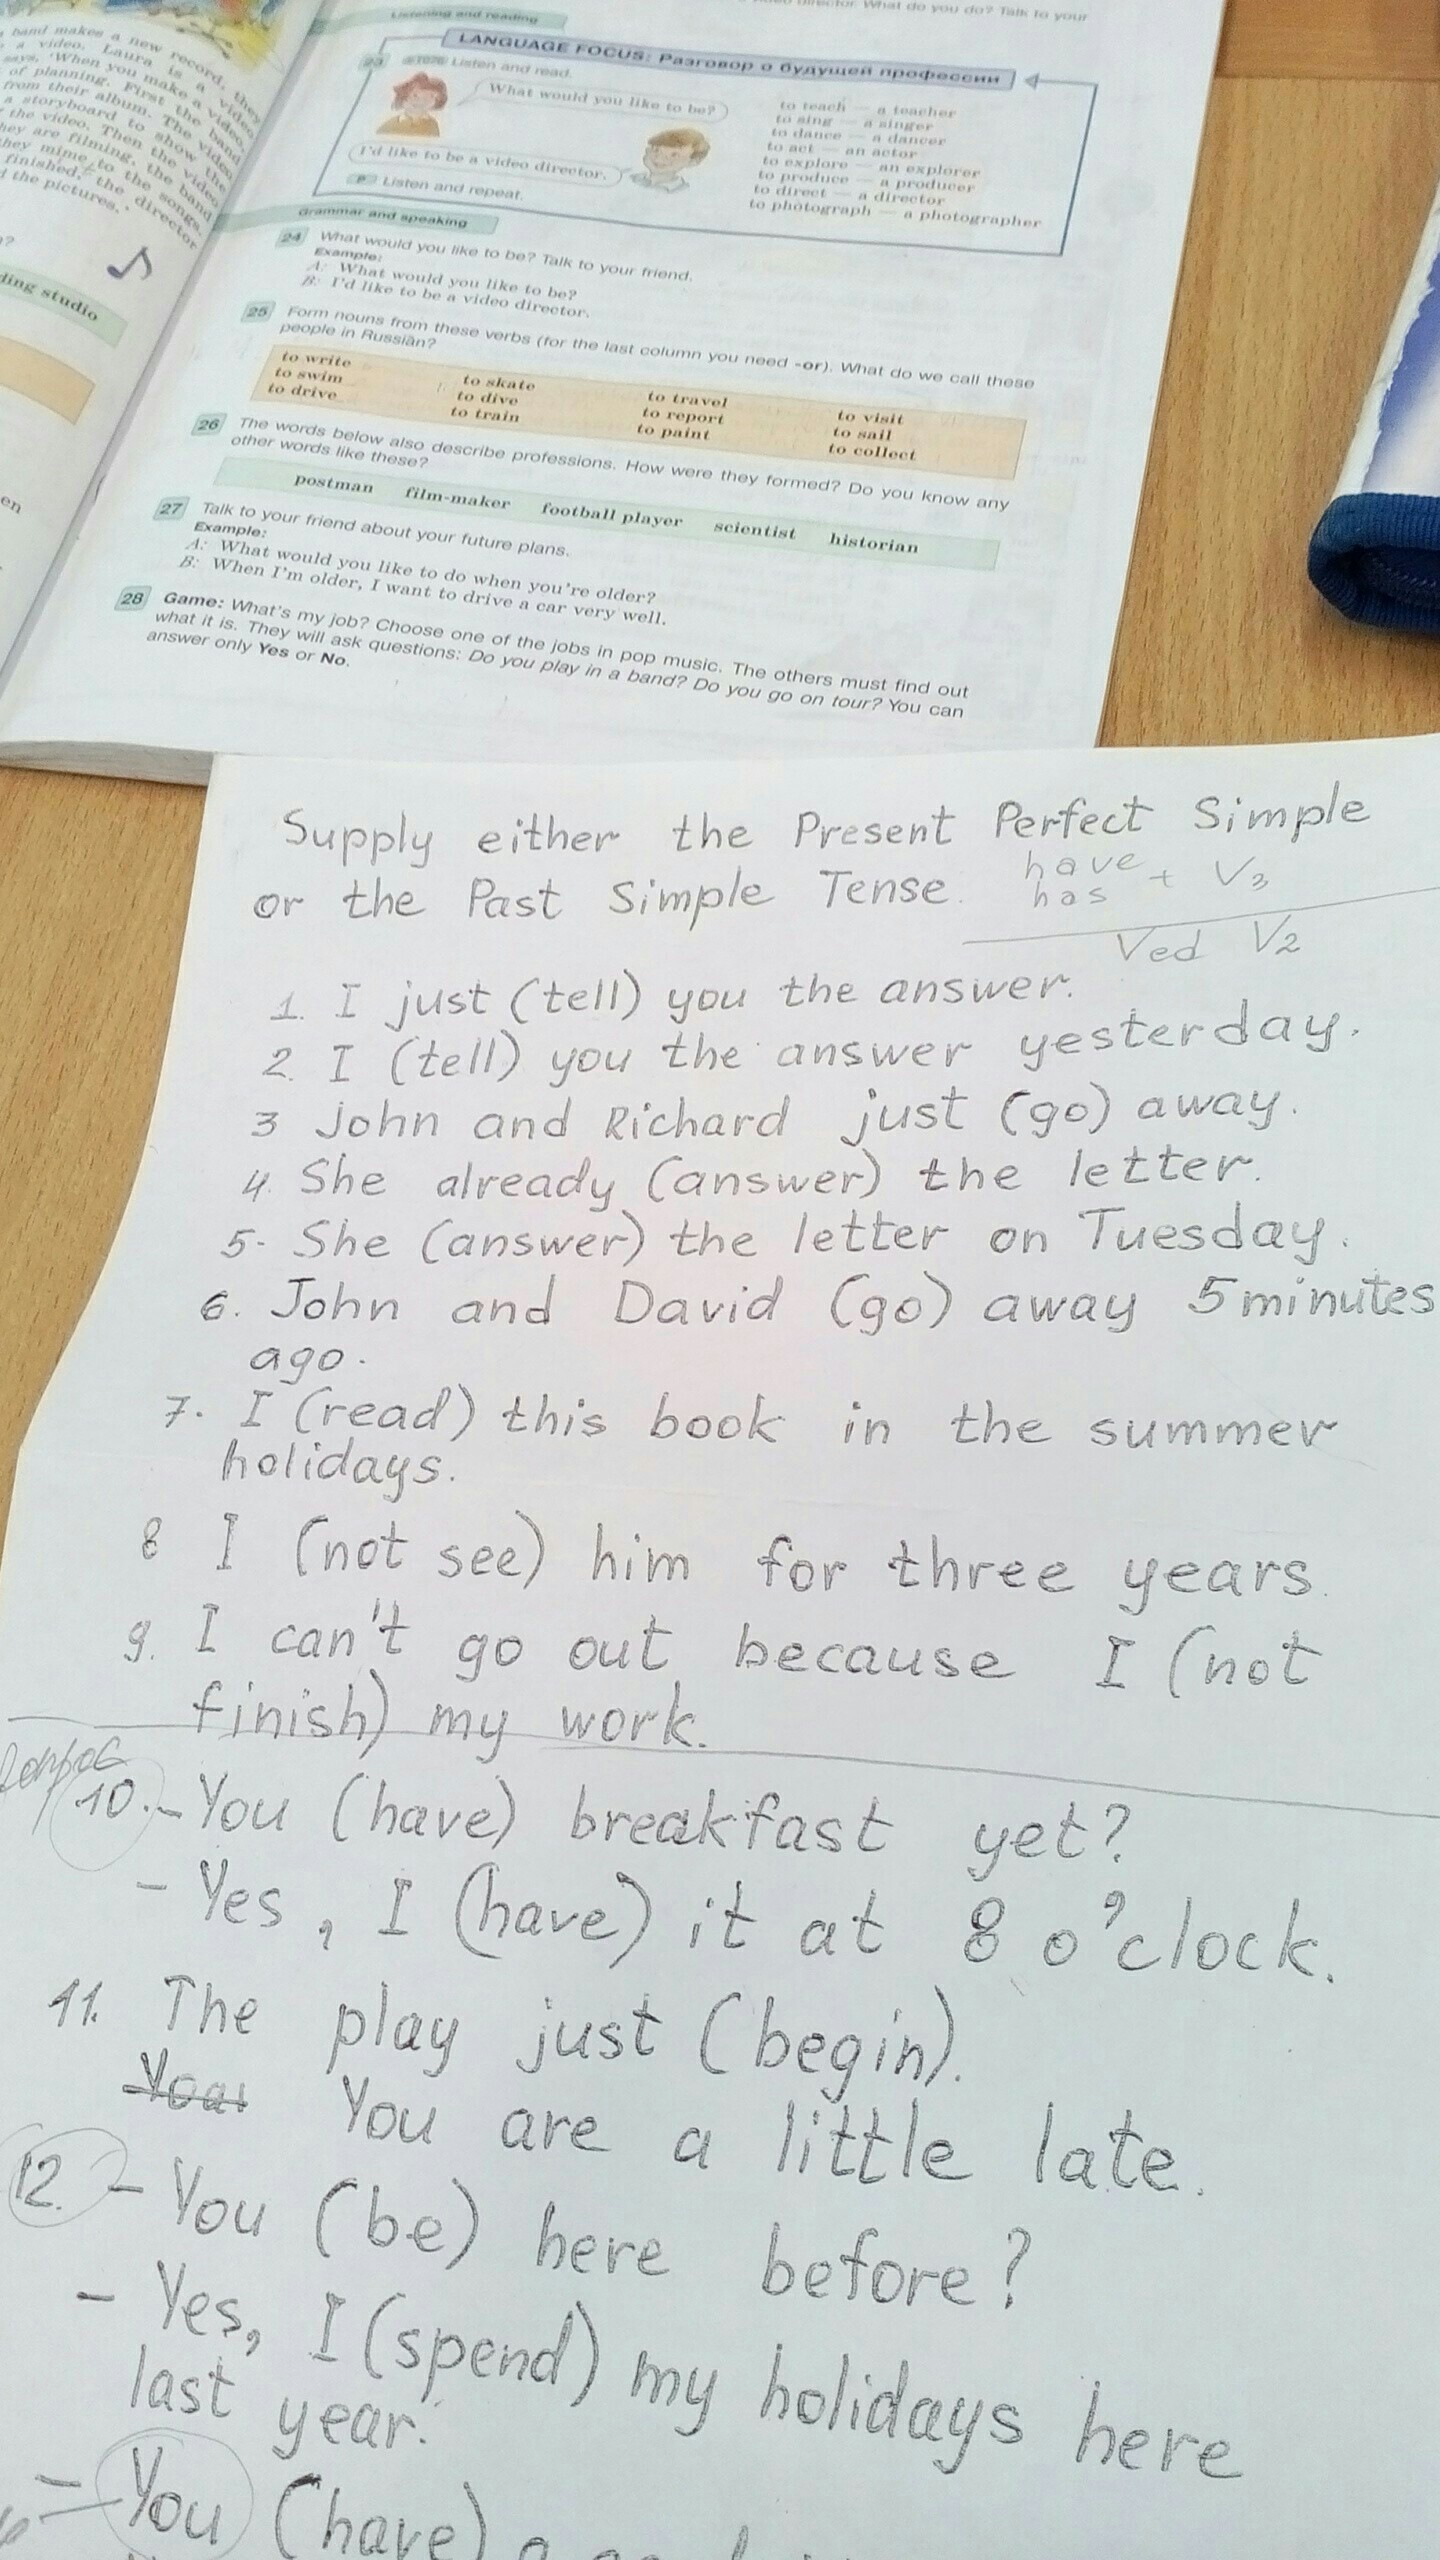 band makes a new record, they
a video. Laura is a video
says, 'When you make a video,
of planning. First the band
from their album. The video
a storyboard to show the
the video. Then the video
hey are filming, the band
they mime to the songs.
finished, the director
d the pictures.'
ding studio
en
Listening and reading
director. What do you do? Talk to your
LANGUAGE FOCUS: Разговор о будущей профессии
23 Listen and read.
What would you like to be?
I'd like to be a video director.
Listen and repeat.
to teach — a teacher
to sing — a singer
to dance — a dancer
to act — an actor
to explore — an explorer
to produce — a producer
to direct — a director
to photograph — a photographer
Grammar and speaking
24 What would you like to be? Talk to your friend.
Example:
A: What would you like to be?
B: I'd like to be a video director.
25 Form nouns from these verbs (for the last column you need -or). What do we call these
people in Russian?
to write
to swim
to drive
to skate
to dive
to train
to travel
to report
to paint
to visit
to sail
to collect
26 The words below also describe professions. How were they formed? Do you know any
other words like these?
postman film-maker football player scientist historian
27 Talk to your friend about your future plans.
Example:
A: What would you like to do when you're older?
B: When I'm older, I want to drive a car very well.
28 Game: What's my job? Choose one of the jobs in pop music. The others must find out
what it is. They will ask questions: Do you play in a band? Do you go on tour? You can
answer only Yes or No.
Supply either the Present Perfect Simple
or the Past Simple Tense.
have + V3
has
Ved V2
1. I just (tell) you the answer.
2. I (tell) you the answer yesterday.
3 John and Richard just (go) away.
4. She already (answer) the letter.
5. She (answer) the letter on Tuesday.
6. John and David (go) away 5 minutes
ago.
7. I (read) this book in the summer
holidays.
8 I (not see) him for three years.
9. I can't go out because I (not
finish) my work.
Вопрос
10. - You (have) breakfast yet?
- Yes, I (have) it at 8 o'clock.
11. The play just (begin).
You are a little late.
12. - You (be) here before?
- Yes, I (spend) my holidays here
last year.
- You (have) a